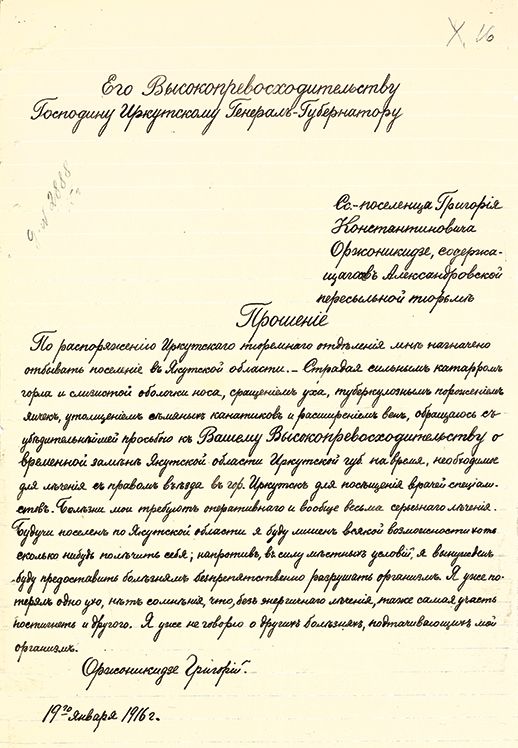 X. 16
Его Высокопревосходительству
Господину Иркутскому Генералъ-Губернатору
№ 2888
Сс.-поселенца Григорія
Константиновича
Орджоникидзе, содержа-
щагося въ Александровской
пересыльной тюрьмѣ
Прошеніе
По распоряженію Иркутскаго тюремнаго отдѣленія мнѣ назначено
отбывать поселеніе въ Якутской области. – Страдая сильнымъ катарромъ
горла и слизистой оболочки носа, сращеніемъ уха, туберкулезнымъ пораженіемъ
яичекъ, утолщеніемъ сѣмяныхъ канатиковъ и расширеніемъ венъ, обращаюсь съ
убѣдительнѣйшей просьбою къ Вашему Высокопревосходительству о
временной замѣнѣ Якутской области Иркутской губ. на время, необходимое
для лѣченія съ правомъ въѣзда въ гор. Иркутскъ для посѣщенія врачей спеціали-
стовъ. Болѣзни мои требуютъ оперативнаго и вообще весьма серьезнаго лѣченія.
Будучи поселенъ по Якутской области я буду лишенъ всякой возможности хоть
сколько нибудь полѣчить себя; напротивъ, въ силу мѣстныхъ условій, я вынужденъ
буду предоставить болѣзнямъ безпрепятственно разрушать организмъ. Я уже по-
терялъ одно ухо, нѣтъ сомнѣнія, что, безъ энергичнаго лѣченія, таже самая участь
постигнетъ и другого. Я уже не говорю о другихъ болѣзняхъ, подтачивающихъ мой
организмъ.
Орджоникидзе Григорій.
19го января 1916 г.